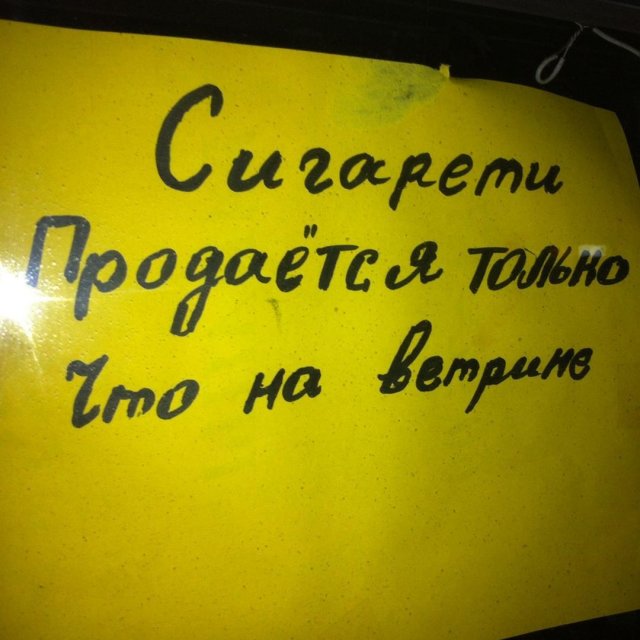 Сигарети
Продаётся только
Что на ветрине